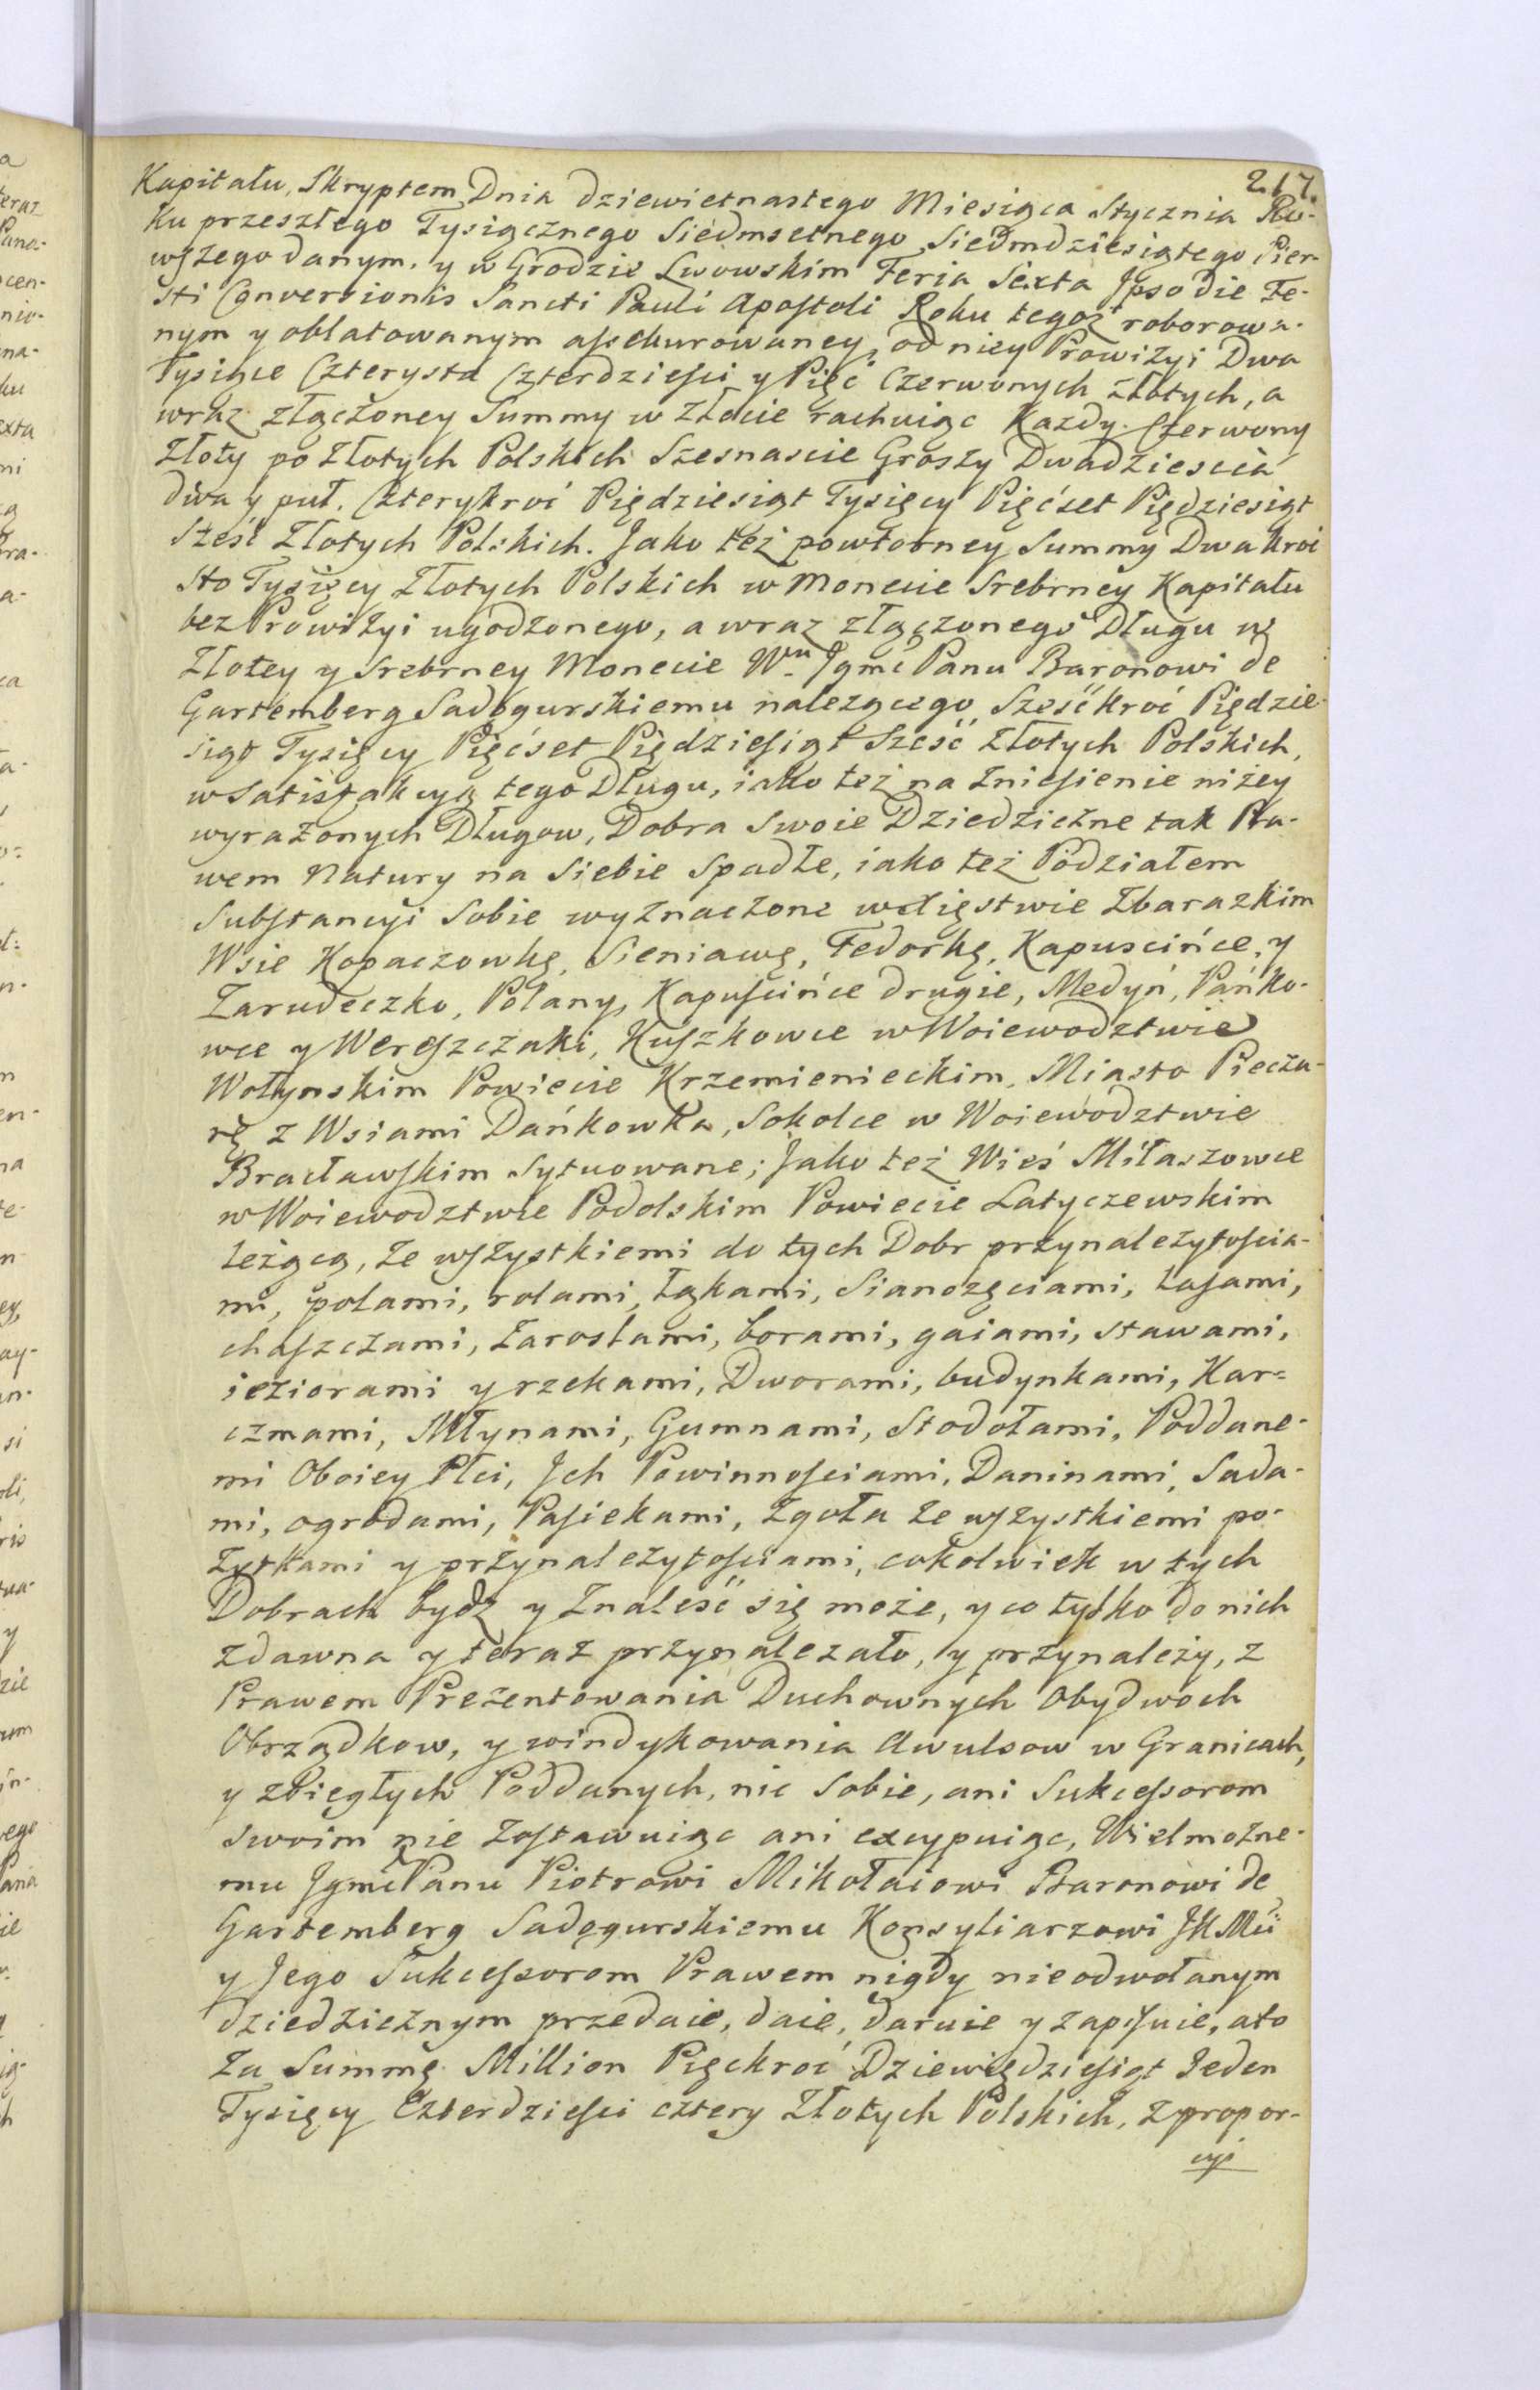 217.
Kapitału, Skryptem Dnia dziewietnastego Miesiąca Stycznia Ro-
ku przeszłego Tysiącznego Siedmsetnego Siedmdziesiątego Pier-
wszego danym, y w Grodzie Lwowskim Feria Sexta Ipso die Fe-
sti Conversionis Sancti Pauli Apostoli Roku tegoż roborowa-
nym y oblatowanym assekurowaney, od niey Prowizyi Dwa
Tysiące Czterysta Czterdziesci y Pięć Czerwonych złotych, a
wraz złączoney Summy w Złocie rachuiąc Kazdy Czerwony
Złoty po Złotych Polskich Szesnascie Groszy Dwadziescia
dwa y puł. Czterykroć Piędziesiąt Tysięcy Pięćset Piędziesiąt
Sześć Złotych Polskich. Jako też powtorney Summy Dwakroć
Sto Tysięcy Złotych Polskich w Monecie Srebrney Kapitału
bez Prowizyi ugodzonego, a wraz złączonego Długu w
Złotey y Srebrney Monecie Wu Jgmć Panu Baronowi de
Gartemberg Sadogurskiemu nalezącego Sześćkroć Piędzie-
siąt Tysięcy Pięćset Piędziesiąt Sześć Złotych Polskich,
w Satisfakcyą tego Długu, iako też na Zniesienie niżey
wyrażonych Długow, Dobra Swoie Dziedziczne tak Pra-
wem Natury na Siebie Spadłe, iako też Podziałem
Substancyi Sobie wyznaczone w Xięstwie Zbarazkim
Wsie Kopaczowkę, Sieniawę, Fedorkę, Kapuscińce, y
Zarudeczko, Polany, Kapuścińce drugie, Medyń, Pańko-
wce y Wereszczaki, Kuszkowce w Woiewodztwie
Wołynskim Powiecie Krzemienieckim, Miasto Pieczu-
rę z Wsiami Dańkowka, Sokolce w Woiewodztwie
Bracławskim Sytuowane; Jako też Wieś Miłaszowce
w Woiewodztwie Podolskim Powiecie Latyczewskim
leżącą, ze wszystkiemi do tych Dobr przynależytościa-
mi, polami, rolami, łąkami, Sianozęciami, Lasami,
chaszczami, Zaroslami, borami, gaiami, stawami,
ieziorami y rzekami, Dworami, budynkami, Kar=
czmami, Młynami, Gumnami, Stodołami, Poddane-
mi Oboiey Płci, Ich Powinnościami, Daninami, Sada-
mi, ogrodami, Pasiekami, Zgoła ze wszystkiemi po-
żytkami y przynależytościami, cokolwiek w tych
Dobrach bydź y Znaleść się może, y co tylko do nich
zdawna y teraz przynalezało, y przynależy, z
Prawem Prezentowania Duchownych Obydwoch
Obrządkow, y windykowania Awulsow w Granicach,
y zbiegłych Poddanych, nic Sobie, ani Sukcessorom
Swoim nie Zostawuiąc ani excypuiąc, Wielmożne-
mu Jgmć Panu Piotrowi Mikołaiowi Baronowi de
Gartemberg Sadogurskiemu Konsyliarzowi JKMci
y Jego Sukcessorom Prawem nigdy nieodwołanym
dziedzicznym przedaie, daie, daruie y zapisuie, a to
Za Summę Million Pięckroć Dziewiędziesiąt Jeden
Tysięcy Czterdziesci cztery Złotych Polskich, z propor-
cyi